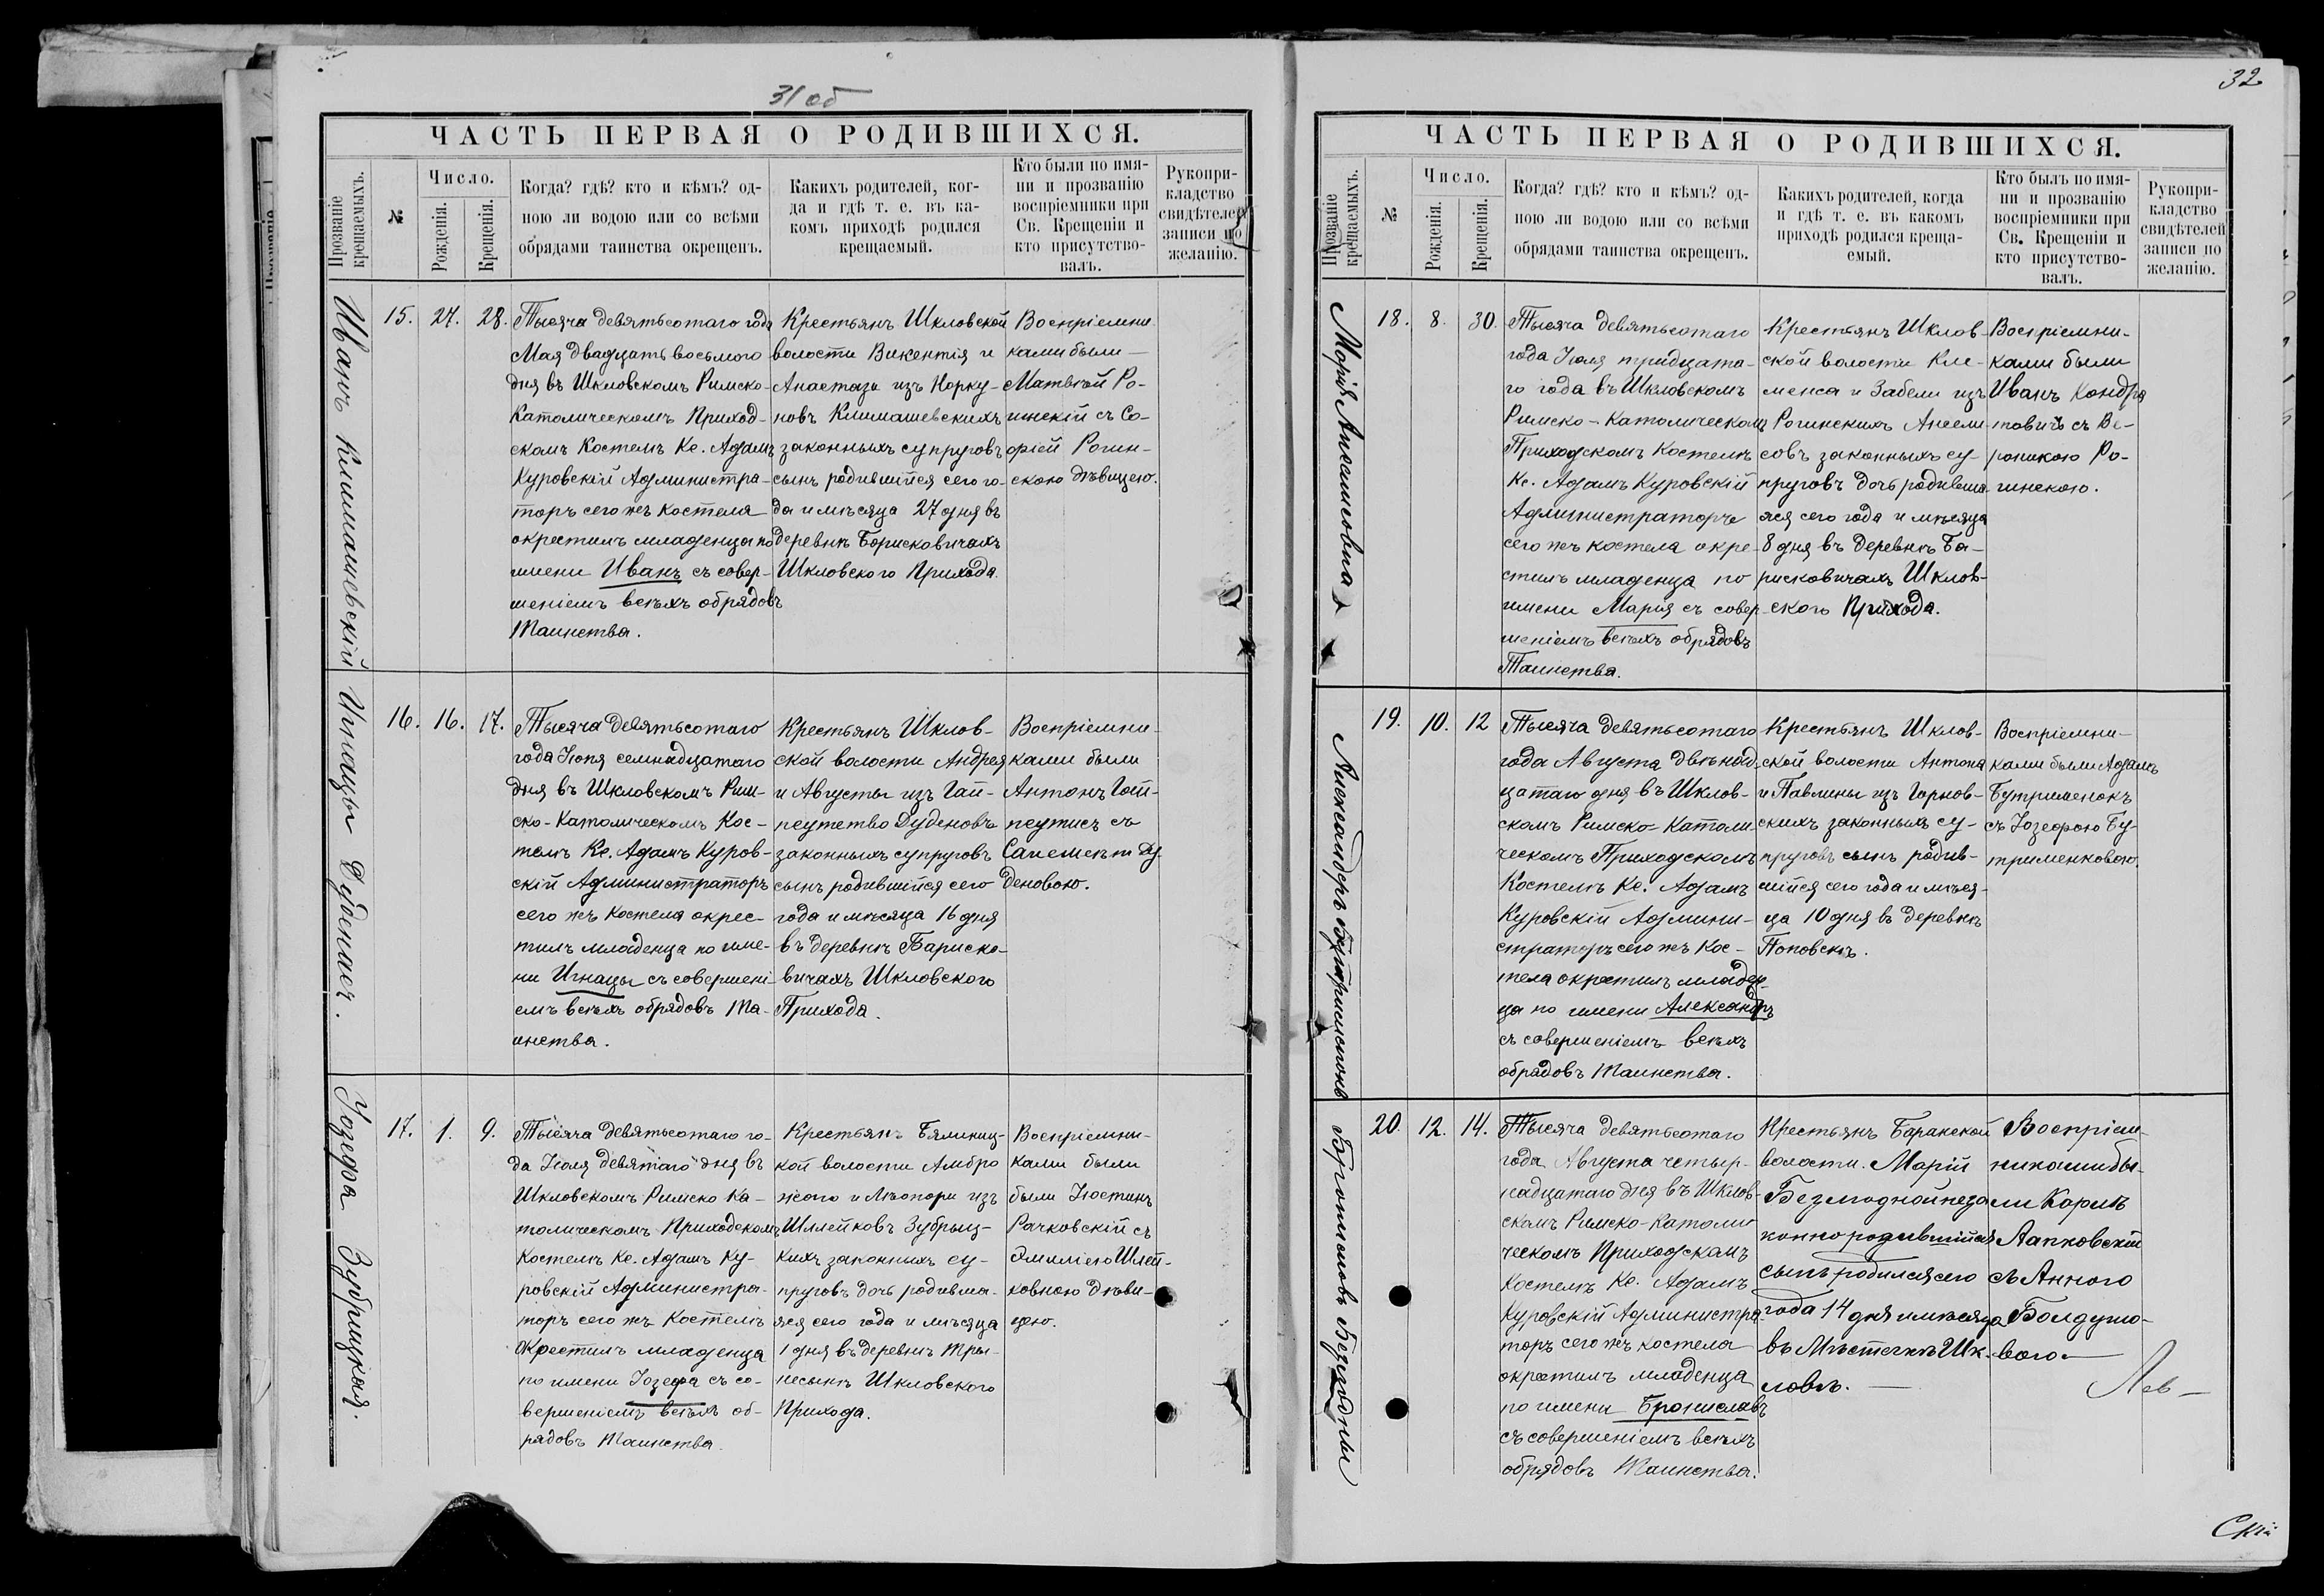 31 об
ЧАСТЬ ПЕРВАЯ О РОДИВШИХСЯ.
Прозваніе крещаемыхъ.
№
Число.
Рожденія.
Крещенія.
Когда? гдѣ? кто и кѣмъ? од-
ною ли водою или со всѣми
обрядами таинства окрещенъ.
Какихъ родителей, ког-
да и гдѣ т. е. въ ка-
комъ приходѣ родился
крещаемый.
Кто были по имя-
ни и прозванію
воспріемники при
Св. Крещеніи и
кто присутство-
валъ.
Рукопри-
кладство
свидѣтелей
записи по
желанію.
Иванъ Климашевскій
15.
27.
28.
Тысяча девятьсотаго года
Мая двадцать восьмого
дня въ Шкловскомъ Римско-
Католическомъ Приход-
скомъ Костелѣ Кс. Адамъ
Куровскій Администра-
торъ сего жъ костела
окрестилъ младенца по
имени Иванъ съ совер-
шеніемъ всѣхъ обрядовъ
Таинства.
Крестьянъ Шкловской
волости Викентія и
Анастази изъ Норку-
новъ Климашевскихъ
законныхъ супруговъ
сынъ родившійся сего го-
да и мѣсяца 27 дня въ
деревнѣ Борисковичахъ
Шкловского Прихода.
Воспріемни-
ками были
Матвѣй Ро-
гинскій съ Со-
фіей Рогин-
скою дѣвицею.
Игнацы Дуденисъ.
16.
16.
17.
Тысяча девятьсотаго
года Іюня семнадцатаго
дня въ Шкловскомъ Рим-
ско-Католическомъ Кос-
телѣ Кс. Адамъ Куров-
скій Администраторъ
сего жъ костела окрес-
тилъ младенца по име-
ни Игнацы съ совершені-
емъ всѣхъ обрядовъ Та-
инства.
Крестьянъ Шклов-
ской волости Андрея
и Августы изъ Гай-
законныхъ супруговъ
сынъ родившійся сего
года и мѣсяца 16 дня
въ деревнѣ Бариско-
вичахъ Шкловского
Прихода.
Воспріемни-
ками были
Антонъ Гай-
деновою.
Іозефа Зубрицкая.
17.
1.
9.
Тысяча девятьсотаго го-
да Іюля девятаго дня въ
Шкловскомъ Римско Ка-
толическомъ Приходскомъ
Костелѣ Кс. Адамъ Ку-
ровскій Администра-
торъ сего жъ Костелѣ
Окрестилъ младенца
по имени Іозефа съ со-
вершеніемъ всѣхъ об-
рядовъ Таинства.
Крестьянъ Бялиниц-
кой волости Амбро
изъ
Шлейковъ Зубриц-
кихъ законныхъ су-
пруговъ дочь родивша-
яся сего года и мѣсяца
1 дня въ деревнѣ Тры-
Шкловского
Прихода.
Воспріемни-
ками были
были Іюстинъ
Рачковскій съ
Эмиліею Шлей-
ковною дѣви-
цею.
32
ЧАСТЬ ПЕРВАЯ О РОДИВШИХСЯ.
Прозваніе крещаемыхъ.
№
Число.
Рожденія.
Крещенія.
Когда? гдѣ? кто и кѣмъ? од-
ною ли водою или со всѣми
обрядами таинства окрещенъ.
Какихъ родителей, когда
и гдѣ т. е. въ какомъ
приходѣ родился креща-
емый.
Кто былъ по имя-
ни и прозванію
воспріемники при
Св. Крещеніи и
кто присутство-
валъ.
Рукопри-
кладство
свидѣтелей
записи по
желанію.
Марія
18.
8.
30.
Тысяча девятьсотаго
года Іюля тридцата-
го года въ Шкловскомъ
Римско-Католическомъ
Приходскомъ Костелѣ
Кс. Адамъ Куровскій
Администраторъ
сего жъ костела окре-
стилъ младенца по
имени Марія съ совер-
шеніемъ всѣхъ обрядовъ
Таинства.
Крестьянъ Шклов-
ской волости Кле-
менса и Забели изъ
Рогинскихъ Ансели-
совъ законныхъ су-
пруговъ дочь родивша-
яся сего года и мѣсяца
8 дня въ деревнѣ Бо-
рисковичахъ Шклов-
ского Прихода.
Воспріемни-
ками были
Иванъ Кондра
товичъ съ Ве-
роникою Ро-
гинскою.
Александръ Бутрименокъ
19.
10.
12
Тысяча девятьсотаго
года Августа двѣнад-
цатаго дня въ Шклов-
скомъ Римско-Католи-
ческомъ Приходскомъ
Костелѣ Кс. Адамъ
Куровскій Админи-
страторъ сего жъ Кос-
тела окрестилъ младен-
ца по имени Александръ
съ совершеніемъ всѣхъ
обрядовъ Таинства.
Крестьянъ Шклов-
ской волости Антона
и Павлины изъ Горнов-
скихъ законныхъ су-
пруговъ сынъ родив-
шійся сего года и мѣся-
ца 10 дня въ деревнѣ
Поповскѣ.
Воспріемни-
ками были Адамъ
Бутрименокъ
съ Іозефою Бу-
трименковою.
20.
12.
14.
Тысяча девятьсотаго
года Августа четыр-
надцатаго дня въ Шклов-
скомъ Римско-Католи
ческомъ Приходскомъ
Костелѣ Кс. Адамъ
Куровскій Администра-
торъ сего жъ костела
окрестилъ младенца
по имени Брониславъ
съ совершеніемъ всѣхъ
обрядовъ Таинства.
Крестьянъ Боранской
волости Марій
незако
нно родившійся
сынъ родился сего
года 14 дня и мѣсяца
въ Мѣстечкѣ Шк-
ловѣ.
Воспріем-
никами бы-
ли Кароль
Лапковскій
съ Анною
Болдузо-
вою
Лев
Скій